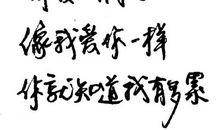 像我爱你一样
你就知道我有多累